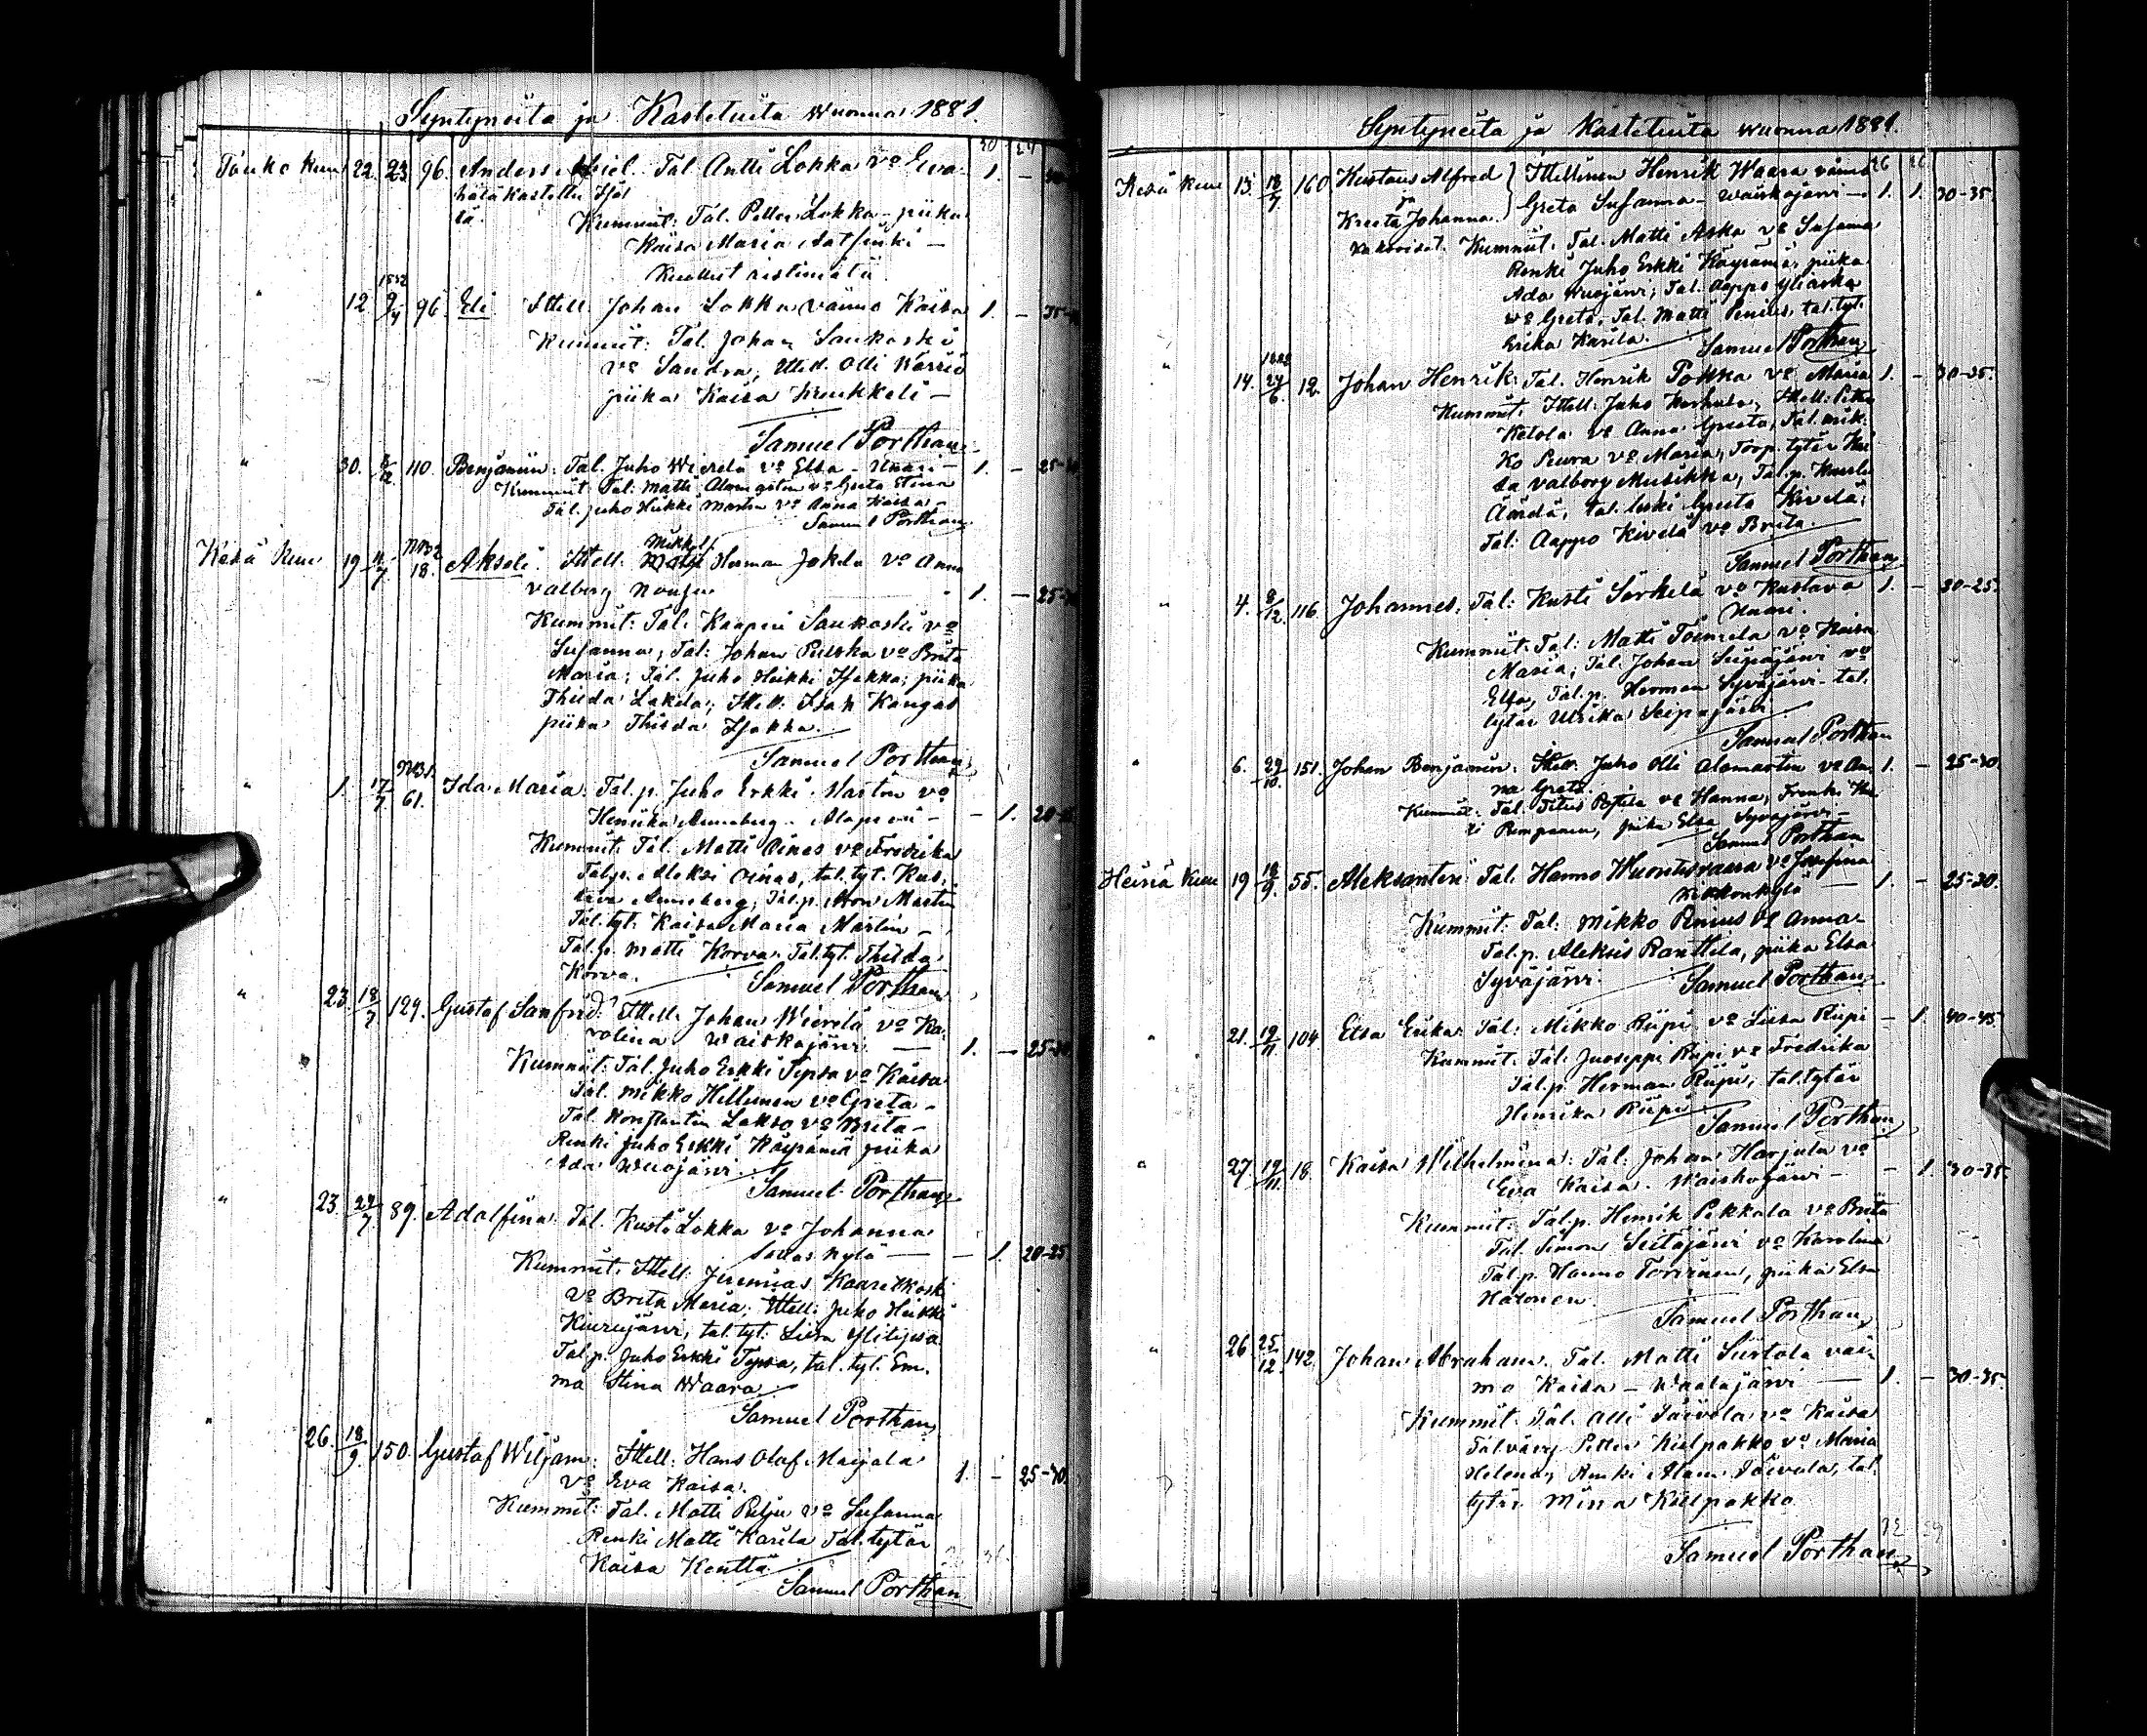 Syntyneitä ja Kastetuita wuonna 1881.
Touko kuu 22. 23 96. Anders Aksiel. Tal. Antti Lokka vo Eva 1. –
hätäkastettu Isäl
tä. Kummit: Tal. Petter Lokka – piika
Kaisa Maria
Kuollut
" 12 1882 9/4 96. Eli Ittell. Johan Lokka vaimo Kaisa 1. –
Kummit: Tal. Johan Sankoski
vo Sandra, Ittell. Olli
piika Kaisa
Samuel Porthan
" 30. 110. Benjamin: Tal. Juho vo Elsa – 1. –
Kummit: Tal. Matti Alamartin vo Greta Stina
Tal. Juho Heikki Martin vo Anna Kaisa –
Samuel Porthan
Kesä kuu 19 11/7 NB2 18. Akseli. Ittell. Mikkel Herman Jokela vo Anna
Valborg 1. –
Kummit: Tal. Kaapin Sankoski vo
Susanna; Tal: Johan vo Brita
Maria; Tal. Juho Heikki piika
Thilda Ittell. Isak Kangas
piika Thilda
Samuel Porthan
" 1. 17/7 NB1. 61. Ida Maria: Tal. p. Juho Erkki Martin vo
Henrika Anneberg – – 1.
Kummit: Tal. Matti Oinas vo Fredrika
Tal.p. Aleksi Oinas, tal. tyt. Kus-
tava Anneberg, Tal.p. Aron Martin
Tal. tyt. Kaisa Maria Martin –
Tal.p. Matti Korva. Tal. tyt. Thilda
Korva.
Samuel Porthan
" 23. 18/7 129. Gustaf Sanfrid: Ittell. Johan vo Ka-
rolina Waiskojärvi – 1. –
Kummit: Tal. Juho Erkki Tepsa vo Kaisa
Tal. Mikko Hettunen vo Greta –
Tal. Konstantin Lakso vo Brita –
Renki Juho Erkki Käyrämä piika
Ada Wuojärvi.
Samuel Porthan
" 23. 24/7 89. Adolfina Tal. Kusti Lokka vo Johanna
– 1. 20-25
Kummit: Ittell. Jeremias Kaarekkoski
vo Brita Maria; Ittell: Juho Heikki
Kiurujärvi, tal. tyt: Liisa
Tal.p. Juho Erkki Tepsa, tal. tyt. Em-
ma Stina Waara
Samuel Porthan
" 26. 18/9 150. Gustaf Wiljam: Ittell: Hans Olaf Maijala
vo Eva Kaisa. 1. – 25-30
Kummit: Tal. Matti vo Susanna
Renki Matti Karila Tal. tytär
Kaisa Kenttä
Samuel Porthan
Syntyneitä ja Kastetuita wuonna 1881.
Kesä kuu 13. 18/7 160. Kustaus Alfred } Ittellinen Henrik Waara vaimo 26 26
ja Greta Susanna – Waiskojärvi – 1. 1. 30-35.
Kreeta Johanna.
kaksoiset. Kummit: Tal. Matti Aska vo Susanna
Renki Juho Erkki Käyrämä, piika
Ada Wuojärvi; Tal. Aappo Yliaska
vo Greta, Tal. Matti Penius, tal. tyt.
Erika Karila.
Samuel Porthan
" 14. 1882 24/6. 12. Johan Henrik: Tal. Henrik Pokka vo Maria 1. – 30-35.
Kummit: Ittell. Juho Ittell. Petter
Ketola vo Anna Greta, Tal. Mik-
ko Peura vo Maria, Torp. tytär Kai-
sa Valborg Musikka, Tal.p. Kusti
Greta Kivelä;
Tal: Aappo Kivelä vo Brita.
Samuel Porthan
" 4. 8/12. 116. Johannes: Tal: Kusti Särkelä vo Kustava 1. – 30-25.
Kummit: Tal: Matti Toimela vo Kaisa
Maria; Tal. Johan Seipäjärvi vo
Elsa, Tal.p. Herman Syväjärvi – tal.
tytär Ulrika Seipäjärvi.
Samuel Porthan
" 6. 29/10. 151. Johan Benjamin: Ittell. Juho Olli Alamartin vo An- 1. – 25-30
na Greta.
Kummit: Tal. Titus Postila vo Hanna,
piika Elsa Syväjärvi –
Samuel Porthan
Heinä kuu 19 18/9. 55. Aleksanteri: Tal. Hanno Wuontisvaara vo Josefina
Kirkonkylä – 1. – 25-30.
Kummit: Tal: Mikko Penius vo Anna –
Tal.p. Aleksis Ranttila, piika Elsa
Syväjärvi.
Samuel Porthan
" 21. 19/11. 104. Elsa Erika: Tal: Mikko Riipi vo Liisa Riipi – 1. 40-45
Kummit: Tal: Juoseppi Riipi vo Fredrika
Tal.p. Herman Riipi, tal. tytär
Henrika Riipi
Samuel Porthan
" 27. 19/11. 18. Kaisa Wilhelmina: Tal. Johan Harjula vo
Eva Kaisa. Waiskojärvi – – 1. 30-35.
Kummit: Tal.p. Henrik Pekkala vo Brita
Tal. Simon Seitäjärvi vo Karolina
Tal.p. Hanno Torvinen, piika Elsa
Halonen.
Samuel Porthan
" 26. 25/12. 142. Johan Abraham. Tal. Matti Siirtola vai-
mo Kaisa – Waalajärvi – 1. – 30-35.
Kummit: Tal. Olli Toivola vo Kaisa
Tal.väv. Petter Kielpakko vo Maria
Helena, Renki Adam Toivola, tal.
tytär Mina Kielpakko
Samuel Porthan